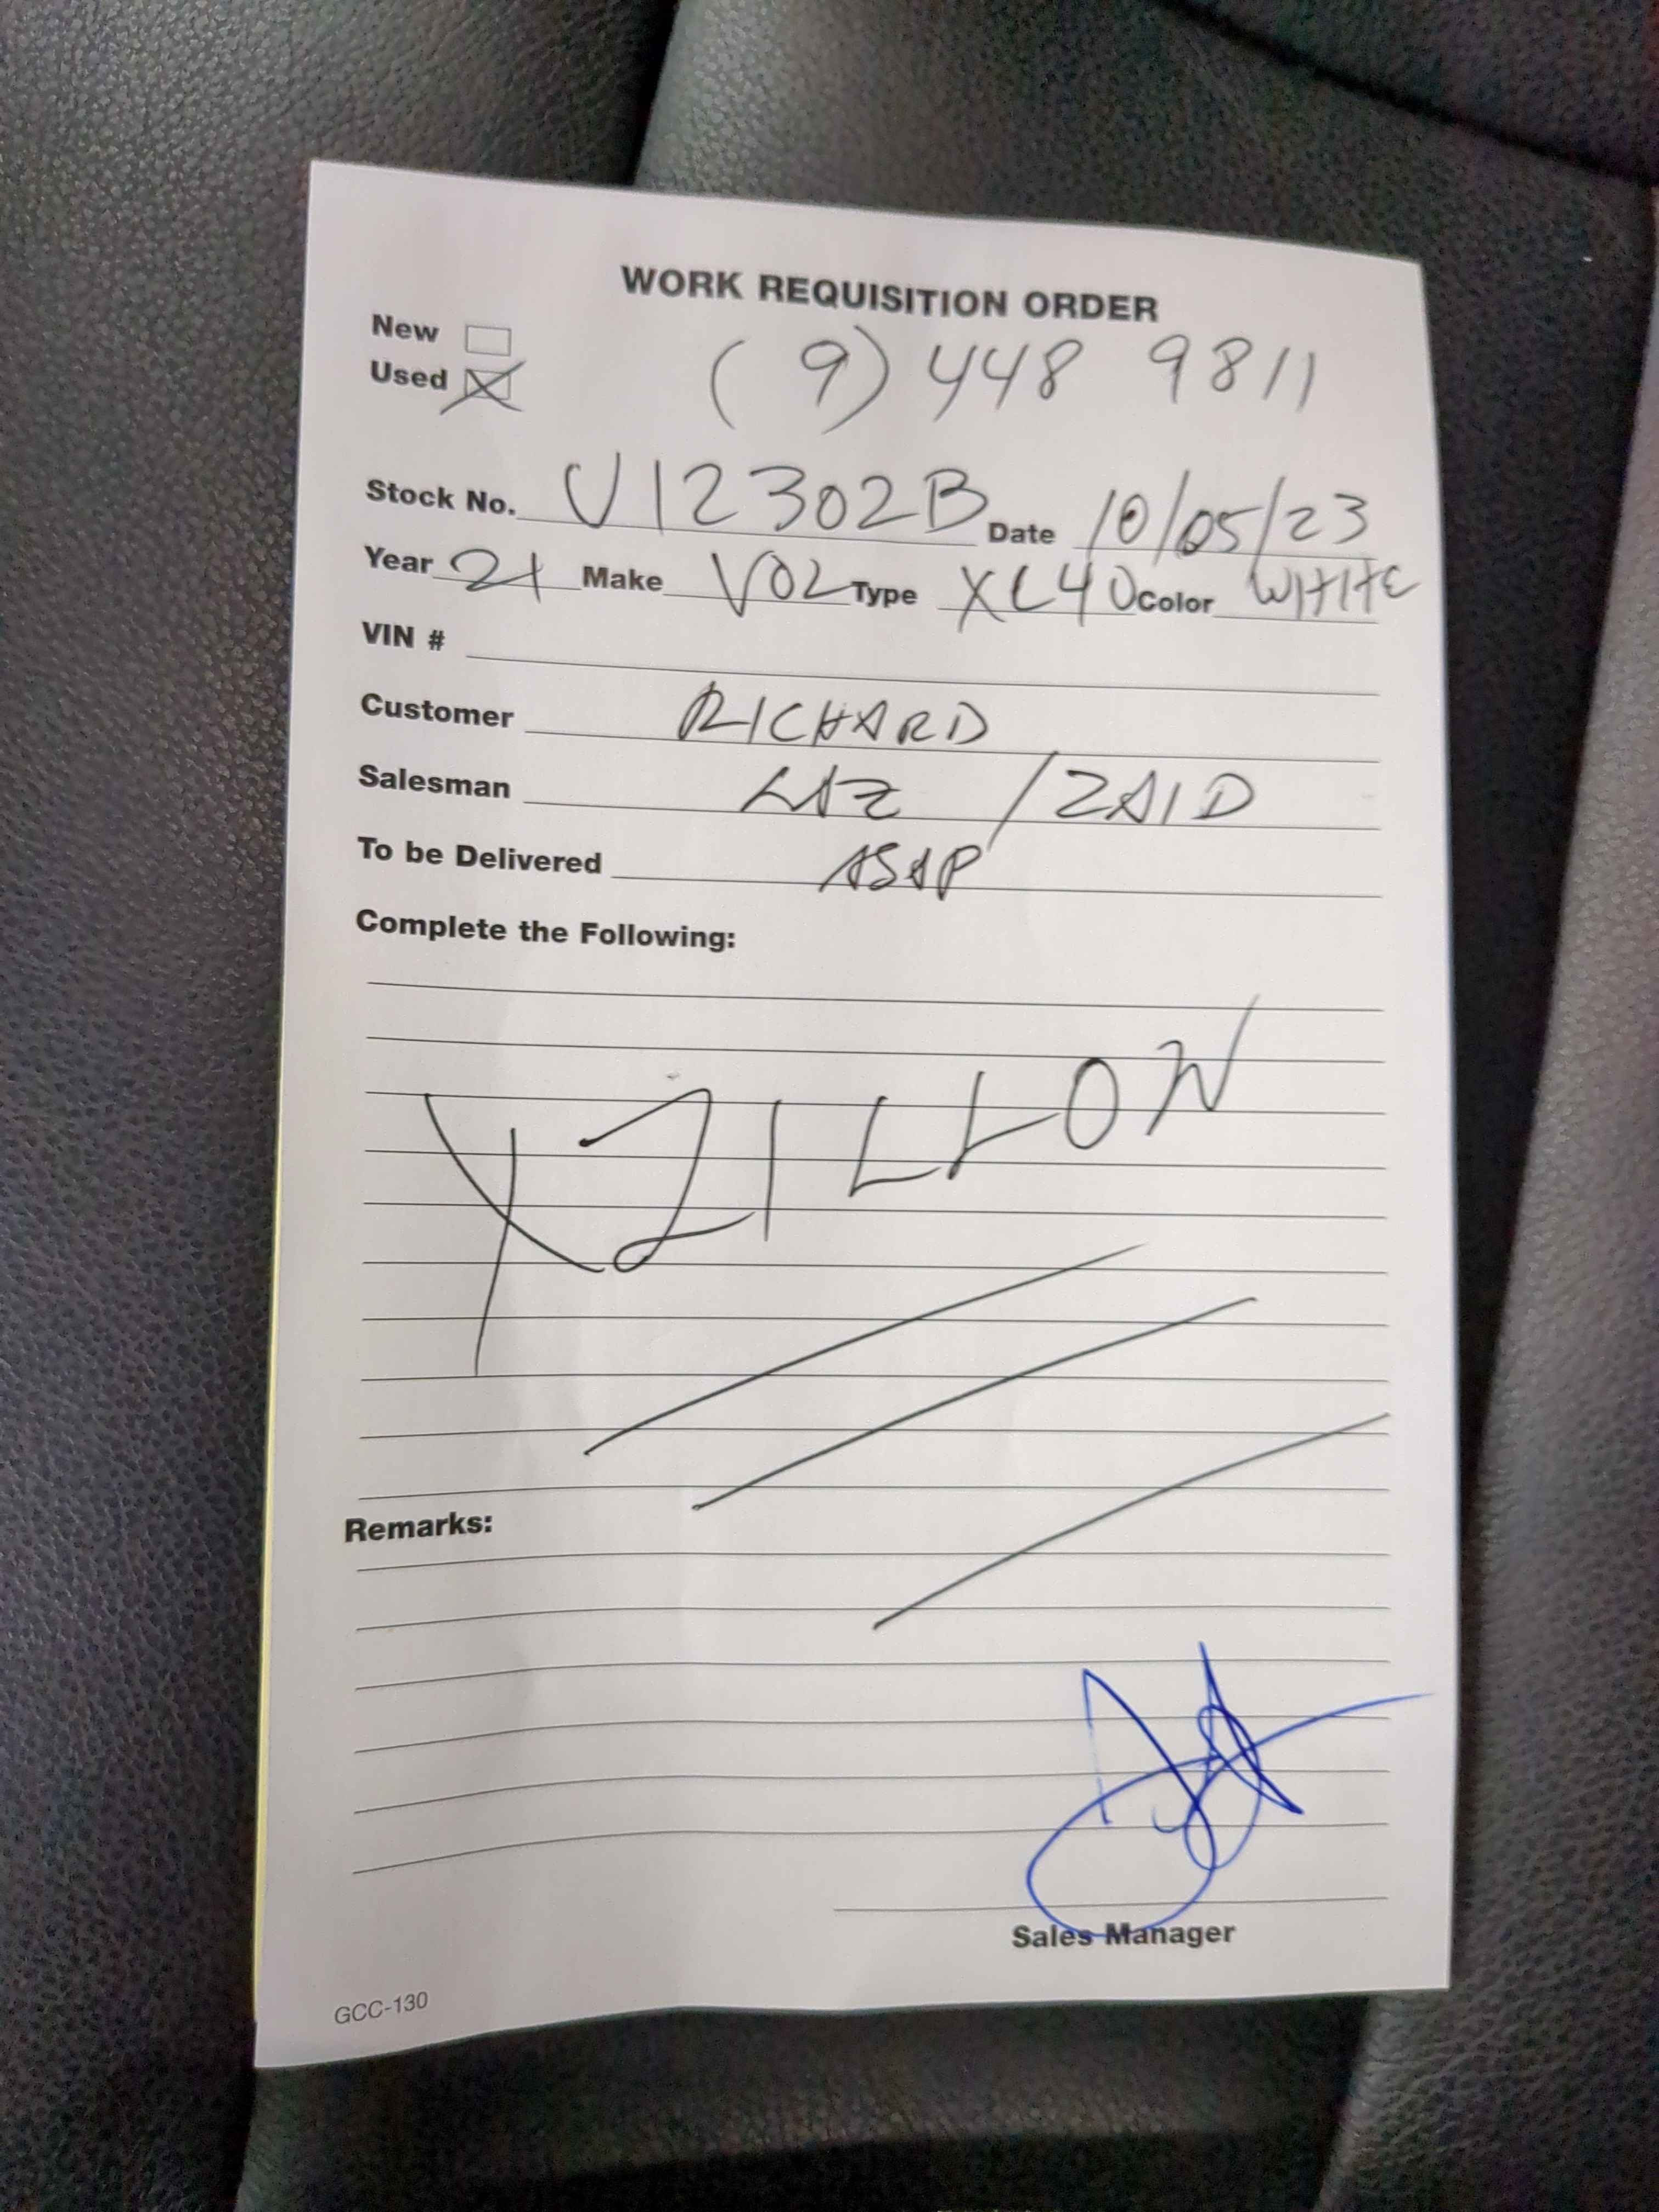 WORK REQUISITION ORDER
New
(9) 448 9811
Used X
Stock No. U12302B Date 10/05/23
Year 21 Make VOL Type XC40 Color WHITE
VIN #
Customer RICHARD
Salesman LAZ / ZAID
To be Delivered ASAP
Complete the Following:
XZILLON
Remarks:
Sales Manager
GCC-130